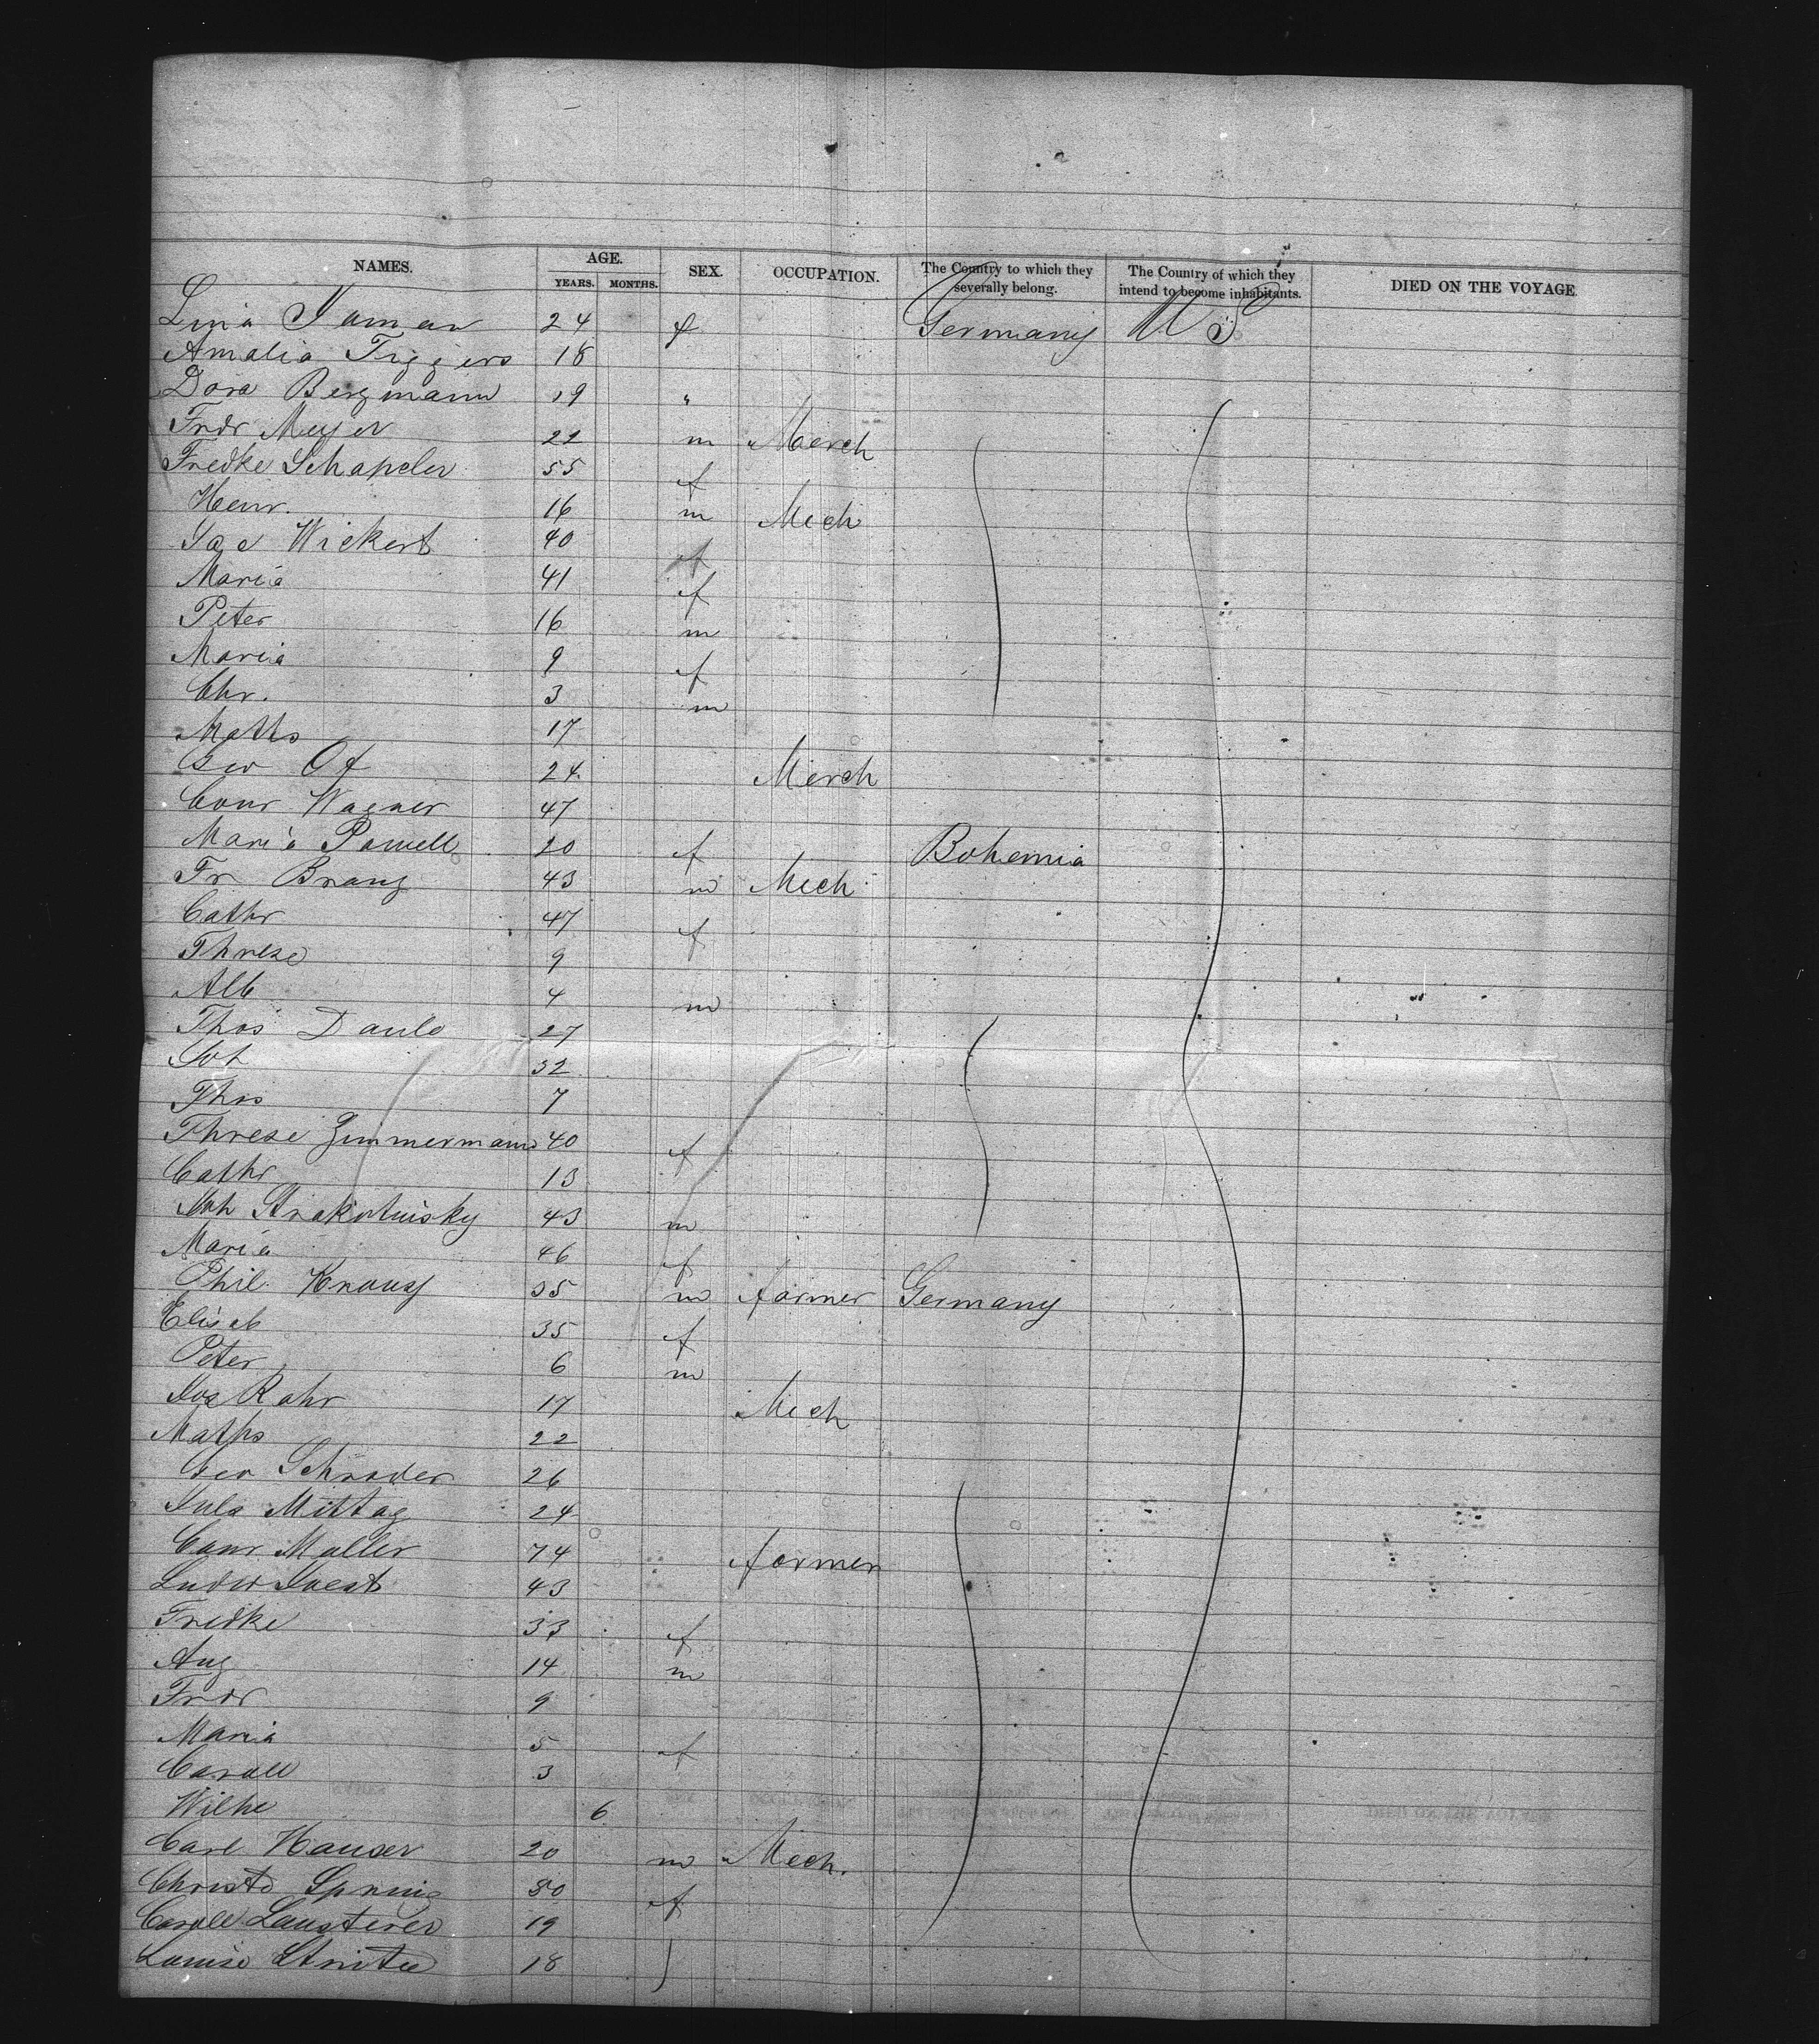 NAMES. AGE. SEX. OCCUPATION. The Country to which they severally belong. The Country of which they intend to become inhabitants. DIED ON THE VOYAGE.
YEARS. MONTHS.
Lina 24 f Germany U S
Amalia Tiggers 18
Dora Bergmann 19 "
Fredr Meyer 22 m Merch
Fredke Schapeler 55 f
Henr. 16 m Mech
Wickert 40
Maria 41 f
Peter 16 m
Maria 9 f
Chr. 3 m
Maths 17
Geo 24 Merch
Conr Wagner 47
Maria Powell 20 f Bohemia
Fr 43 m Mech
Cathr 47 f
Threse 9
Alb 4 m
Thos 27
32
Thos 7
Threse Zimmermann 40 f
Cathr 13
Joh 43 m
Maria 46 f
Phil. Knauss 35 m farmer Germany
Elisab 35 f
Peter 6 m
Jos Rahr 17 Mech
Maths 22
Geo Schroder 26
Juls Mittag 24
Conr Muller 74 farmer
Ludw 43
Fredke 33 f
Aug 14 m
Fredr 9
Maria 5 f
Caroll 3
Wilhe 6
Carl Hauser 20 m Mech.
Christe Spring 50 f
Caroll Lausterer 19
Louise 18